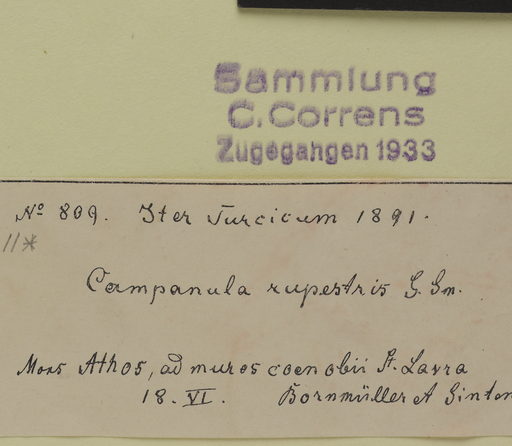 Sammlung
C. Correns
Zugegangen 1933
No 809. Iter Turcicum 1891.
11*
Campanula rupestris S. Sm.
Mons Athos, ad muros coenobii St. Lavra
18. VI. Bornmüller et Sinten